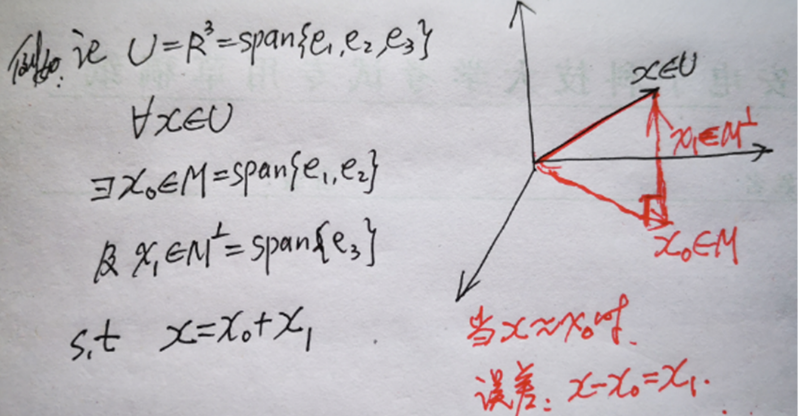 例如:记 U=R³=span{e₁,e₂,e₃}
∀x∈U
∃x₀∈M=span{e₁,e₂}
及 x₁∈M^⊥=span{e₃}
s,t x=x₀+x₁
x∈U
x₁∈M^⊥
x₀∈M
当x≈x₀时.
误差: x-x₀=x₁.